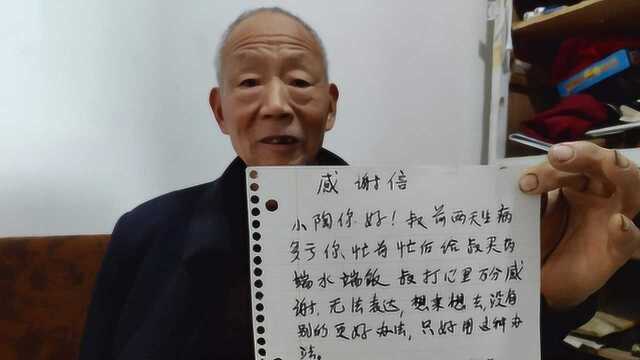 感谢信
小陶你好！叔前两天生病
多亏你、忙前忙后给叔买药
端水端饭 叔打心里万分感
谢，无法表达，想来想去，没有
别的更好办法，只好用这种办
法。